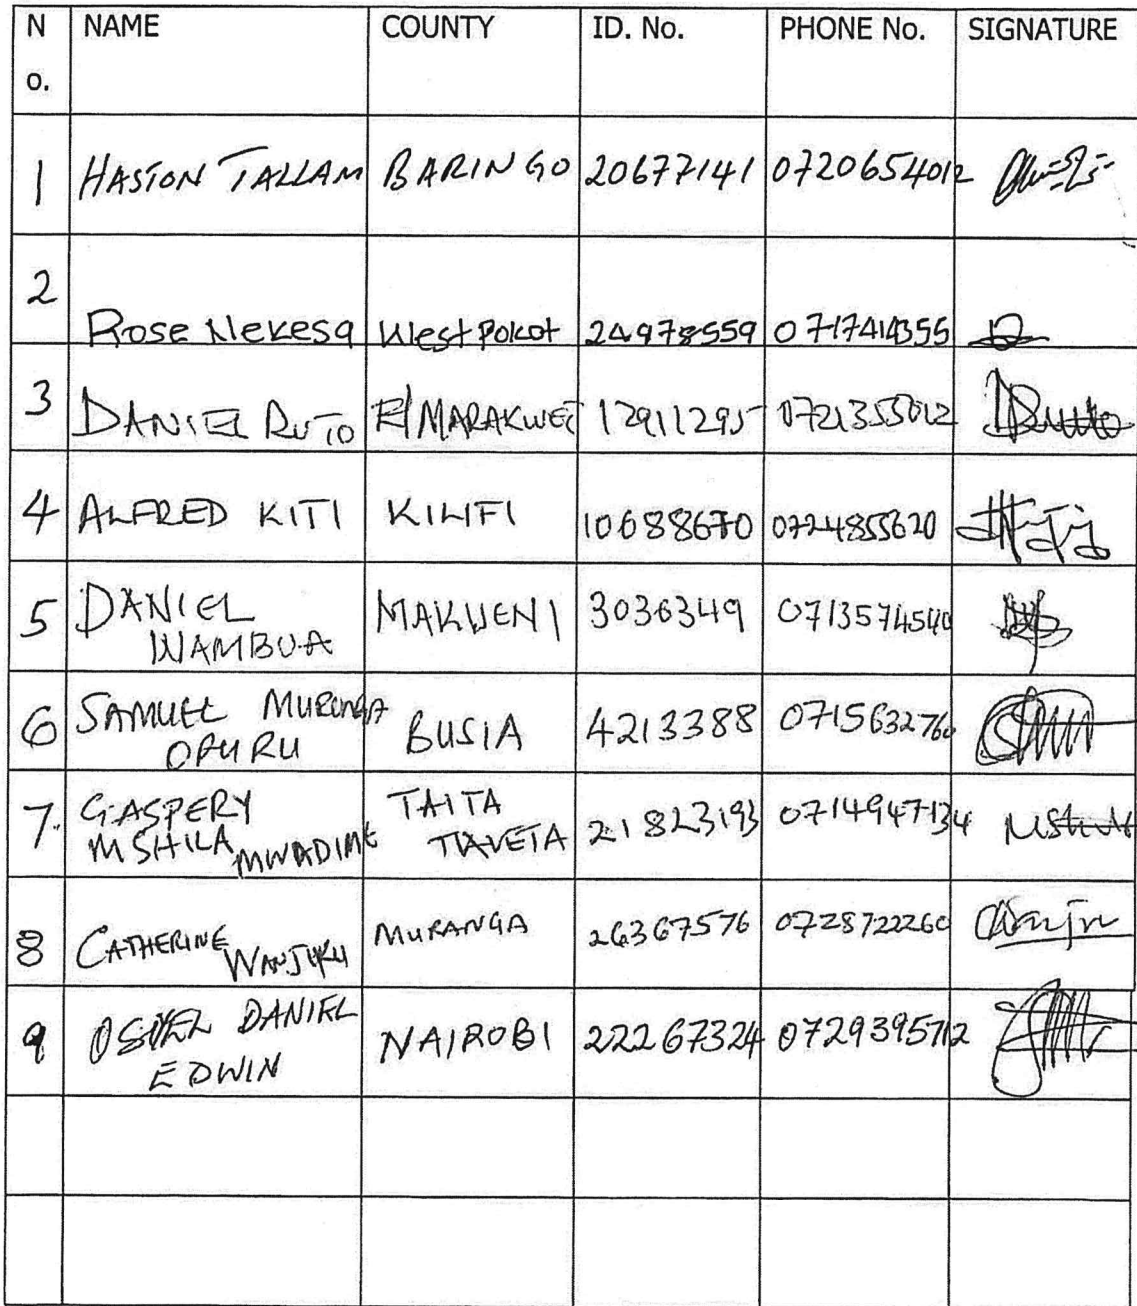 N
o. NAME COUNTY ID. No. PHONE No. SIGNATURE
1 HASTON TALLAM BARINGO 20677141 0720654012
2 Rose Nekesa West Pokot 24978559 0717414355
3 DANIEL RUTO E/MARAKWET 12911295 0721355012
4 ALFRED KITI KILIFI 10688670 0724855620
5 DANIEL
WAMBUA MAKUENI 3036349 0713574540
6 SAMUEL
OPURU BUSIA 4213388 0715632760
7. GASPERY
MSHILA MWADIME TAITA
TAVETA 21823193 0714947134
8 CATHERINE
WANJIKU MURANGA 26367576 0728722260
9 DANIEL
EDWIN NAIROBI 22267324 0729395712